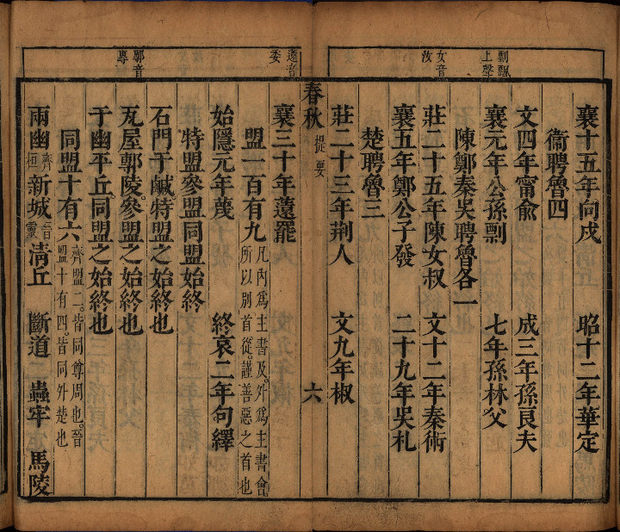 剽飄
上聲
女音
汝
襄十五年向戌 昭十二年華定
衞聘魯四
文四年甯俞 成三年孫良夫
襄元年公孫剽 七年孫林父
陳鄭秦吳聘魯各一
莊二十五年陳女叔 文十二年秦術
襄五年鄭公子發 二十九年吳札
楚聘魯三
莊二十三年荆人 文九年椒
春秋 提要 六
薳音
委
鄄音
襄三十年薳罷
盟一百有九 凡內爲主書及。外爲主書會
所以別首從。謹善惡之首也
始隱元年蔑 終哀二年句繹
特盟參盟同盟始終
石門于鹹特盟之始終也
瓦屋鄄陵。參盟之始終也
于幽平丘同盟之始終也
同盟十有六 齊盟二。皆同尊周也。晉
盟十有四。皆同外楚也
兩幽 齊桓 新城 晉靈 淸丘 斷道 蟲牢 馬陵